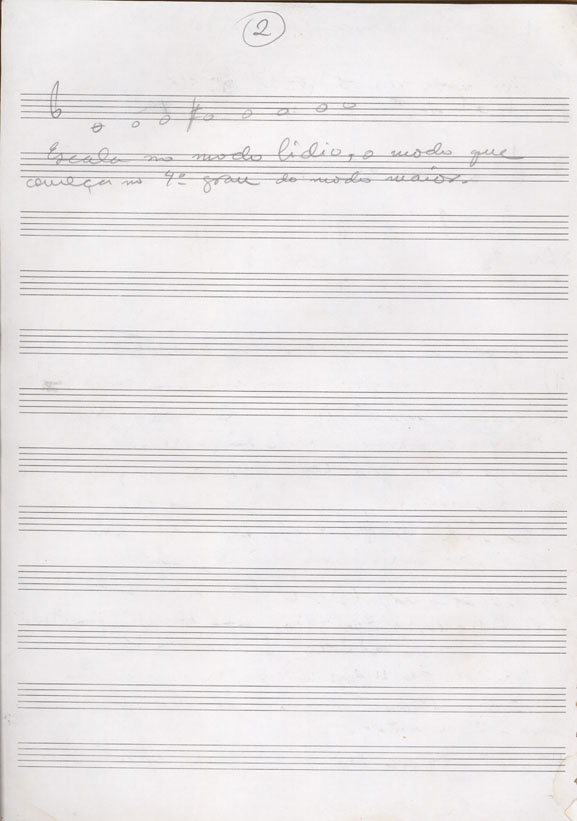 2
Escala no modo lídio, o modo que
começa no 4º grau do modo maior.